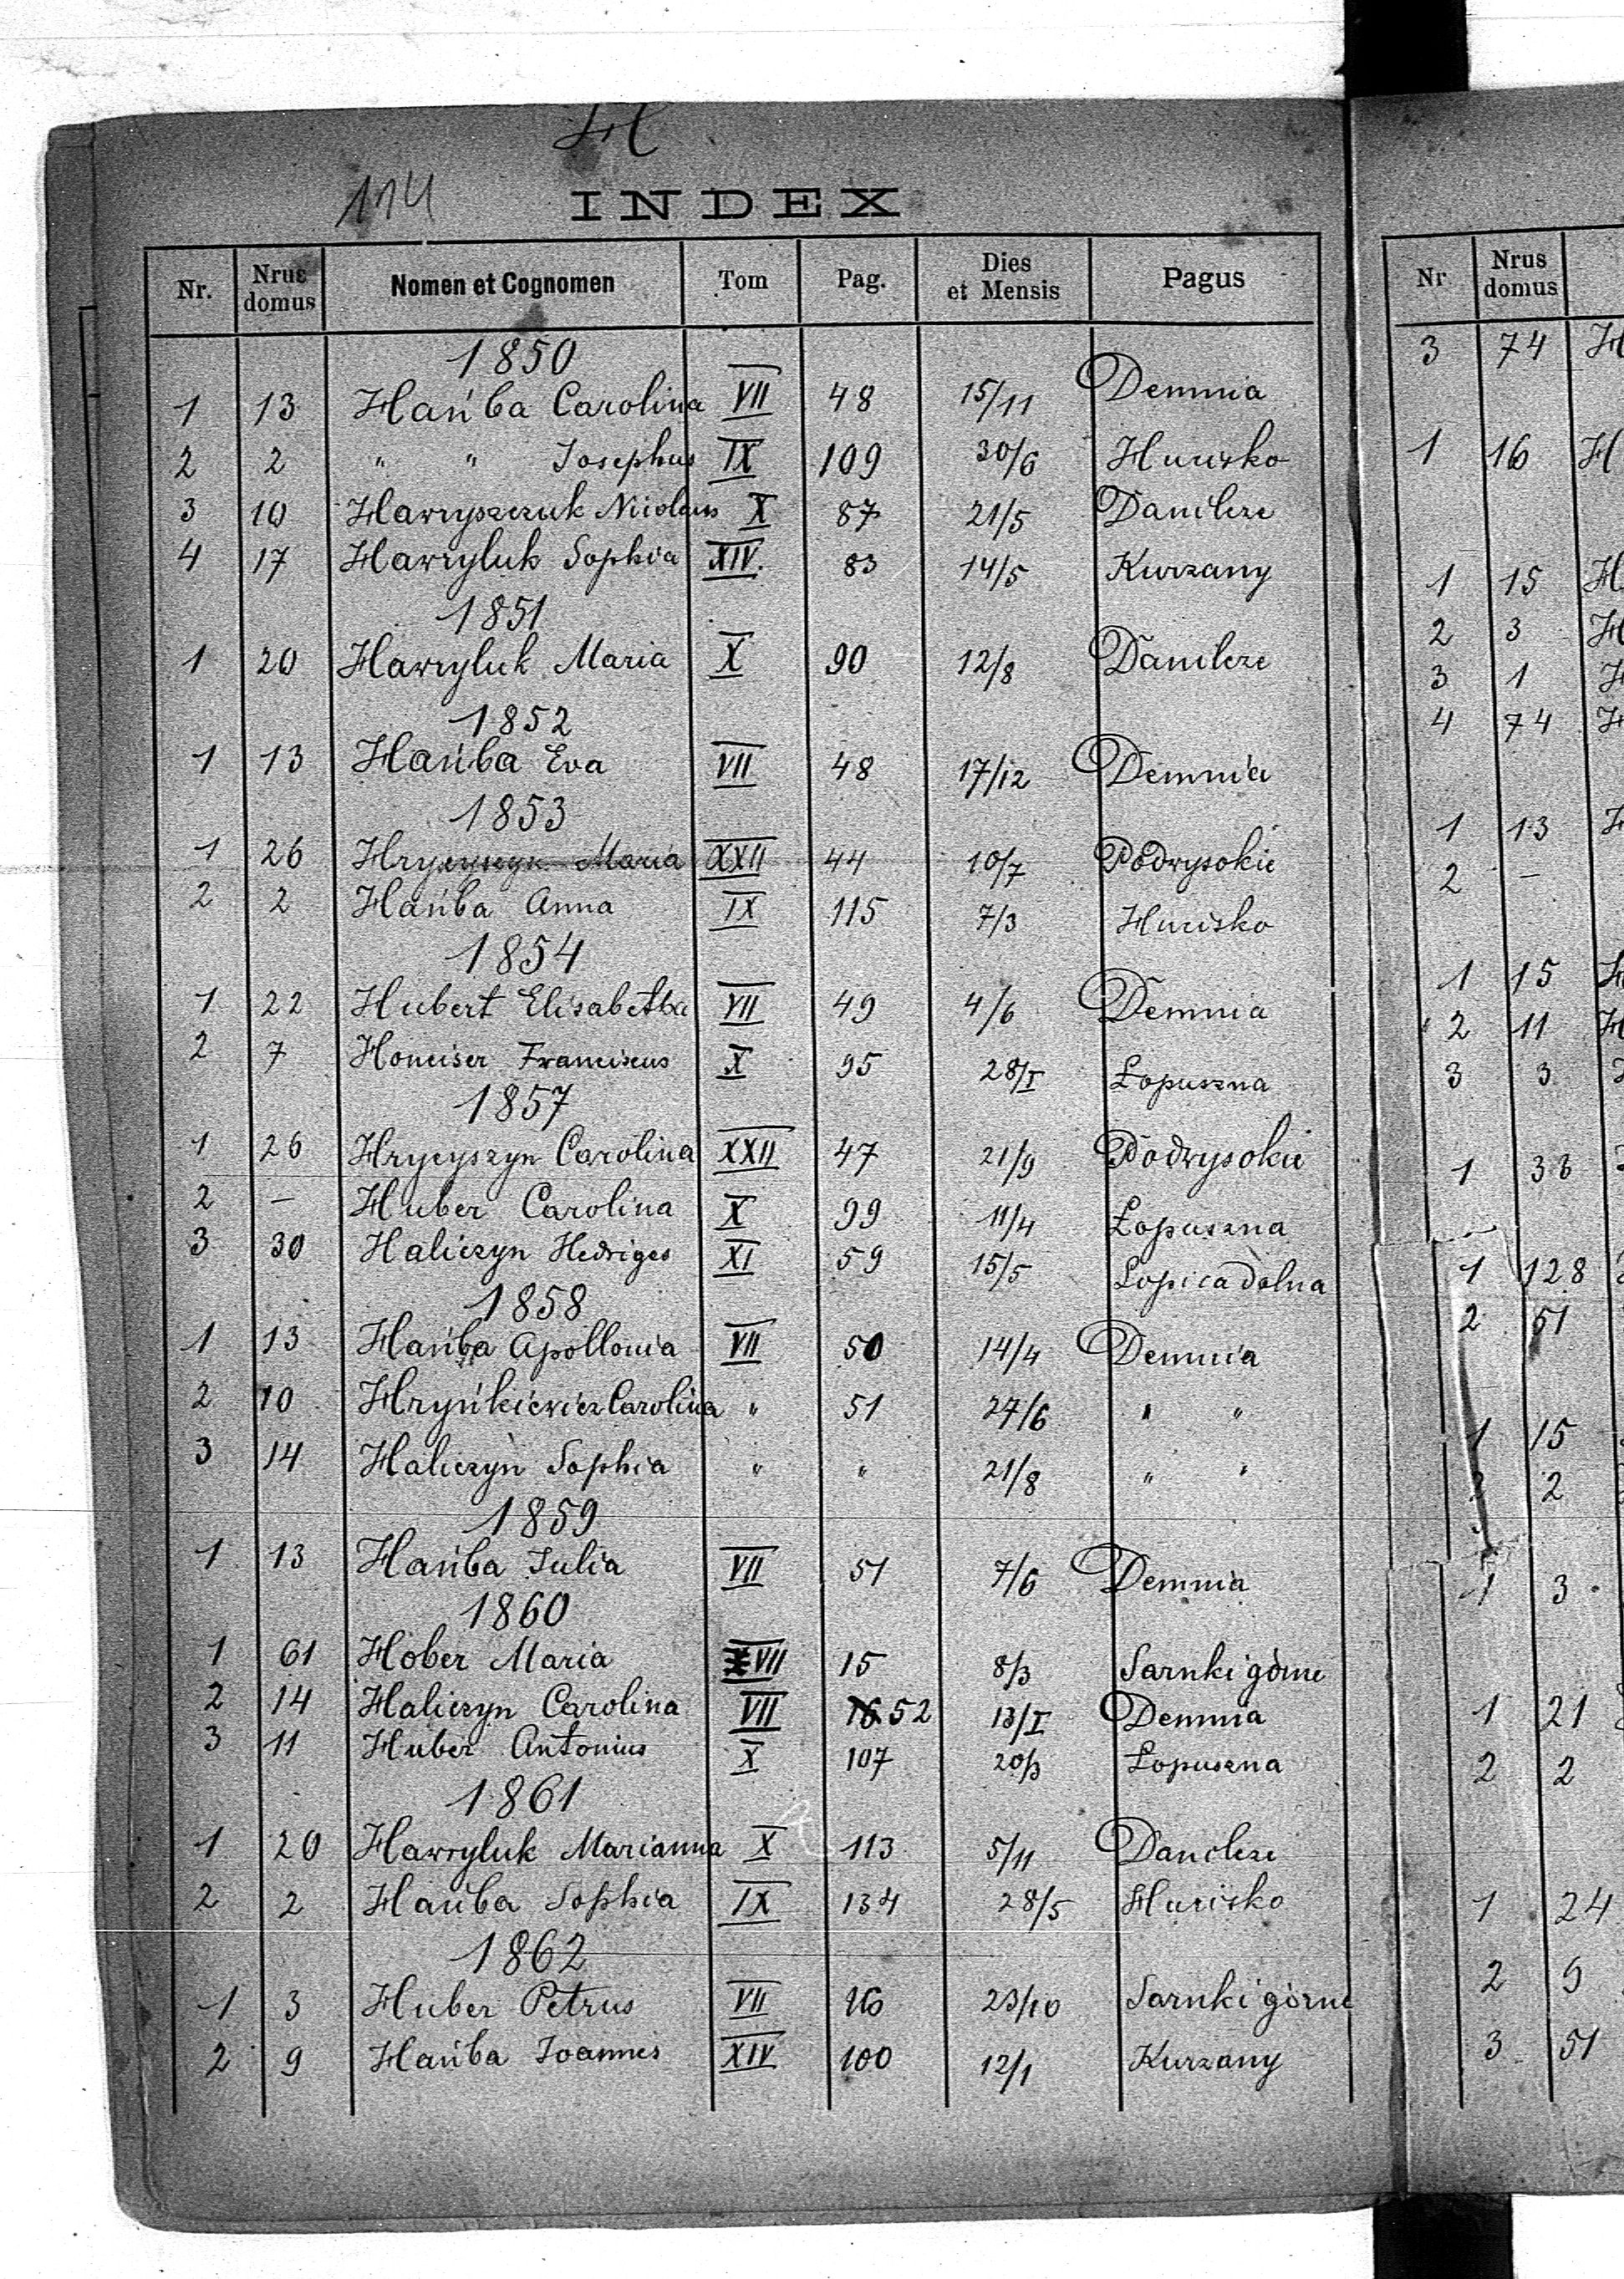 H
114 INDEX
Nr. Nrus domus Nomen et Cognomen Tom Pag. Dies et Mensis Pagus
1850
1 13 Hańba Carolina VII 48 15/11 Demnia
2 2 " " Josephus IX 109 30/6 Hucisko
3 10 Hawryszczuk Nicolaus X 87 21/5 Danilcze
4 17 Hawryluk Sophia XIV. 83 14/5 Kurzany
1851
1 20 Hawryluk Maria X 90 12/8 Danilcze
1852
1 13 Hańba Eva VII 48 17/12 Demnia
1853
1 26 Hrycyszyn Maria XXII 44 10/7 Podwysokie
2 2 Hańba Anna IX 115 7/3 Hucisko
1854
1 22 Hubert Elisabetha VII 49 4/6 Demnia
2 7 Franciscus X 95 28/I Łopuszna
1857
1 26 Hrycyszyn Carolina XXII 47 21/9 Podwysokie
2 – Huber Carolina X 99 11/4 Łopuszna
3 30 Haliczyn Hedviges XI 59 15/5 Lipica dolna
1858
1 13 Hańba Apollonia VII 50 14/4 Demnia
2 10 Hryńkiewicz Carolina " 51 27/6 " "
3 14 Haliczyn Sophia " " 21/8 " "
1859
1 13 Hańba Julia VII 51 7/6 Demnia
1860
1 61 Hober Maria VII 15 8/3 Sarnki górne
2 14 Haliczyn Carolina VII 52 13/I Demnia
3 11 Huber Antonius X 107 20/3 Łopuszna
1861
1 20 Hawryluk Marianna X 113 5/11 Danilcze
2 2 Hańba Sophia IX 134 28/5 Hucisko
1862
1 3 Huber Petrus VII 16 23/10 Sarnki górne
2 9 Hańba Joannes XIV 100 12/1 Kurzany
Nr Nrus domus
3 74 H
1 16 H
1 15 H
2 3 H
3 1 H
4 74 H
1 13 H
2 –
1 15 H
2 11 H
3 3
1 38
1 128
2 51
1 15
2 2
1 3
1 21
2 2
1 24
2 9
3 51